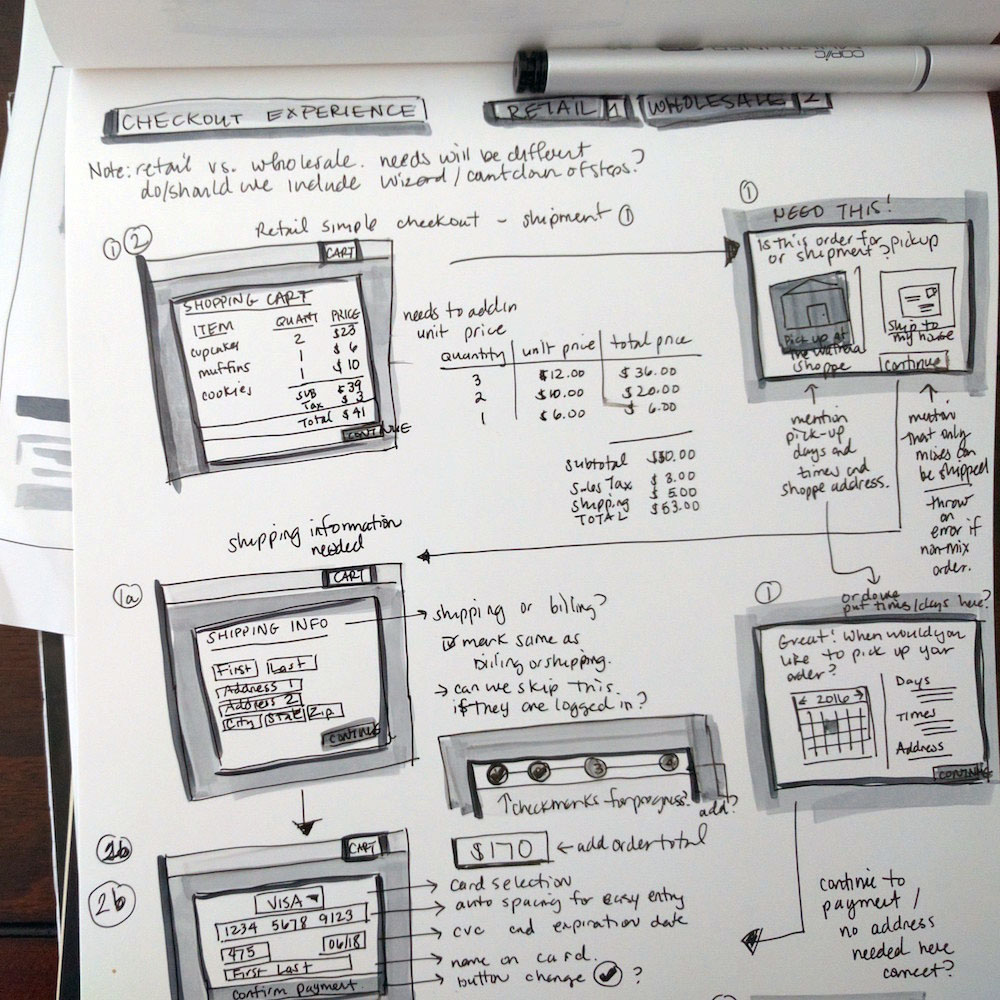 COPIC
CHECKOUT EXPERIENCE
RETAIL 1 WHOLESALE 2
Note: retail vs. wholesale. needs will be different
do/should we include wizard/countdown of steps?
Retail simple checkout - shipment 1
1 2
CART
SHOPPING CART
ITEM QUANT PRICE
cupcakes 2 $23
muffins 1 $6
cookies 1 $10
SUB $39
Tax $3
Total $41
CONTINUE
needs to add in
unit price
quantity unit price total price
3 $12.00 $36.00
2 $10.00 $20.00
1 $6.00 $6.00
subtotal
Sales Tax $3.00
Shipping $5.00
TOTAL $53.00
1
NEED THIS!
Is this order for pickup
or shipment?
Pick up at
the
shoppe
ship to
my house
Continue
mention
pick-up
days and
times and
shoppe address.
mention
that only
mixes can
be shipped
throw
an
error if
non-mix
order.
shipping information
needed
1a
CART
SHIPPING INFO
First Last
Address 1
Address 2
City State Zip
CONTINUE
shipping or billing?
mark same as
billing or shipping.
can we skip this
if they are logged in?
3 4
checkmarks for progress?
add?
1
or do we
put times/days here?
Great! When would you
like to pick up your
order?
2016
Days
Times
Address
CONTINUE
2b
2b
CART
VISA
1234 5678 9123
475 06/18
First Last
Confirm payment
$170 add order total
card selection
auto spacing for easy entry
cvc and expiration date
name on card.
button change ?
continue to
payment /
no address
needed here
correct?